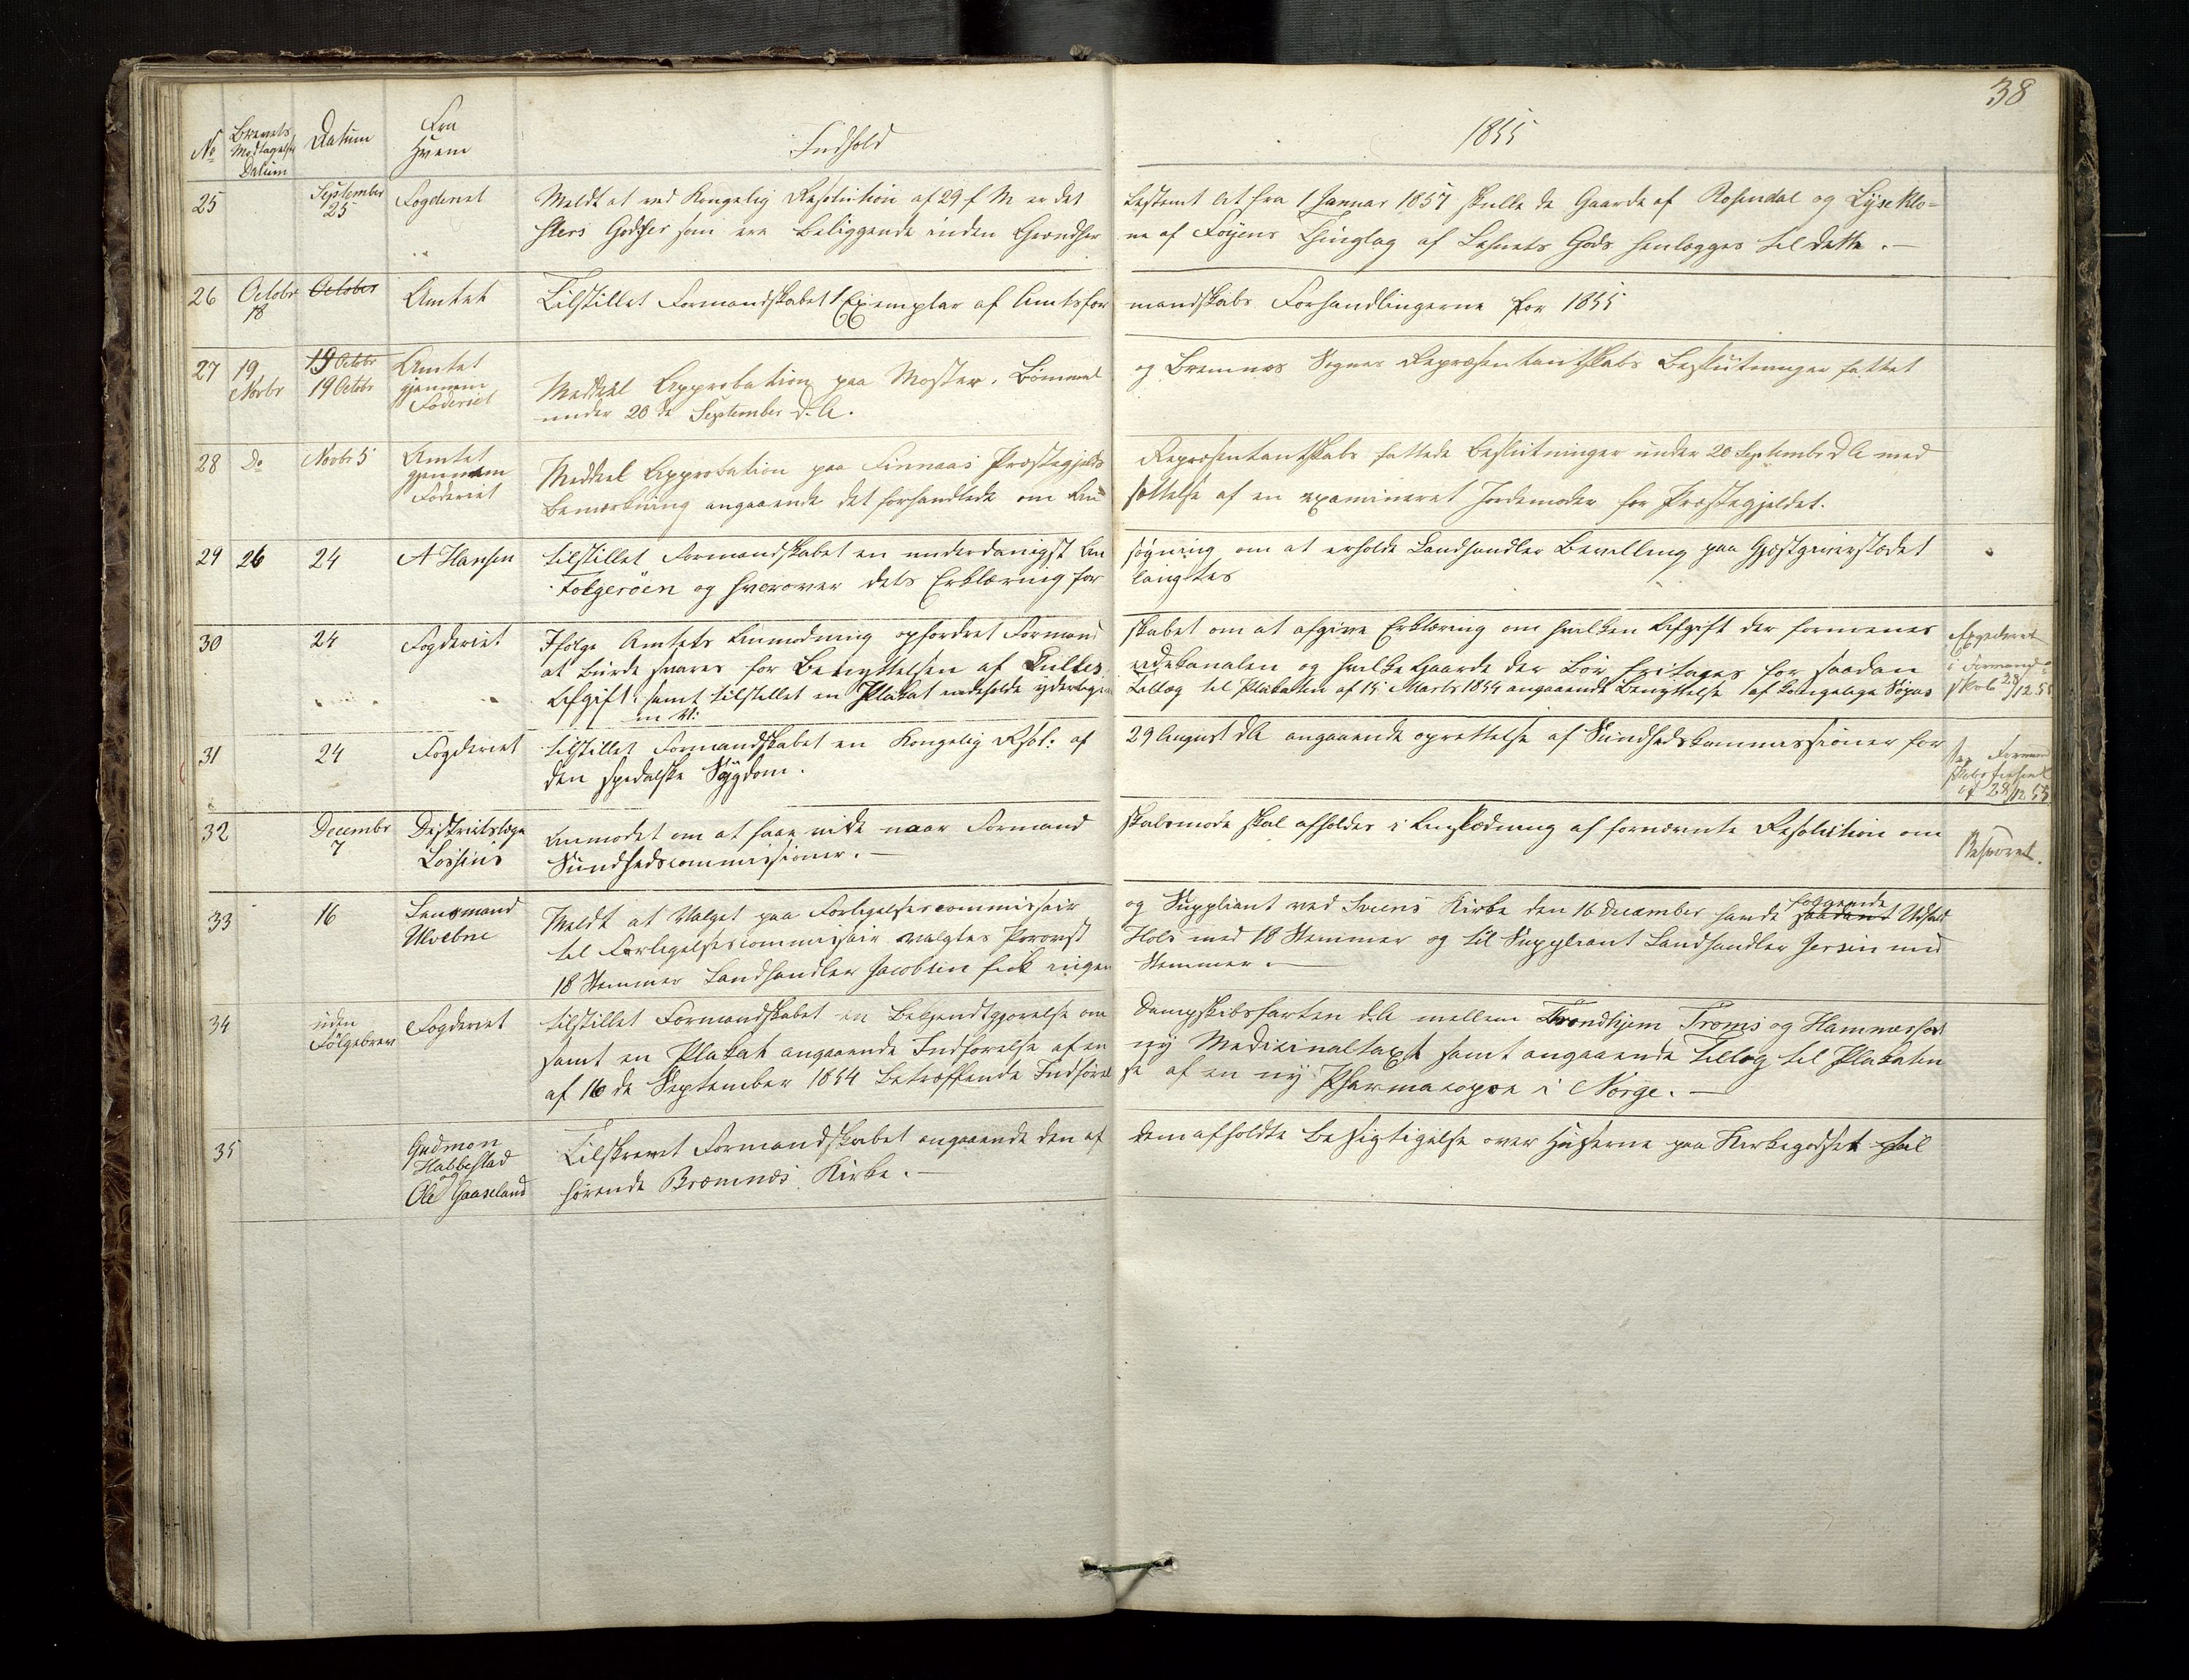 38
1855
No
Brevets Modtagelse Datum
Datum
Fra Hvem
Indhold
25 September 25 Fogderiet Meldt at ved Kongelig Resolution af 29 f M er det bestemt at fra 1 Januar 1857 skulle de Gaarde af Rosendal og Lyse Klo-
sters Godser som ere beliggende inden Grændser ne af Føyens Thinglag af Lehnets Gods henlægges til dette.—
26 Octobr 18 October Amtet Tilstillet Formandskabet 1 Exemplar af Amtsfor mandskabs Forhandlingerne for 1855
27 19 Novbr 19 Octobr 19 Octobr Amtet gjennem Foderiet Meddeel Approbation paa Moster, Bømmel og Bremnes Sognes Repræsentantskabs Beslutninger fattet
under 20de September d.A.
28 Do Novbr 5 Amtet gjennem Foderiet Meddeel Approbation paa Finnaas Præstegjelds Repræsentantskabs fattede Beslutninger under 20 Septembr d A med
Bemærkning angaaende det forhandlede om An sættelse af en examineret Jordemoder for Præstegjeldet.
29 26 24 A Hansen tilstillet Formandskabet en underdanigst An søgning om at erholde Landhandler Bevilling paa Gjæstgiverstædet
Folgerøen og hvorover dets Erklæring for langtes
30 24 Fogderiet Ifølge Amtets Anmodning opfordret Formand skabet om at afgive Erklæring om hvilken Afgift der formenes
at burde svares for Benyttelsen af Kulles eidekanalen og hvilke Gaarde der bør fritages for saadan
Afgift. samt tilstillet en Plakat indeholde yderligere Tillæg til Plakaten af 15 Marts 1854 angaaende Benyttelse af kongelige Søpas
m v:
Expederet i Formandskab 28/12 55
31 24 Fogderiet tilstillet Formandskabet en Kongelig Resol: af 29 August dA angaaende oprettelse af Sundhedskommissioner for
den spedalske Sygdom.
Formandskabs 28/12 55
32 Decembr 7 Distriktslæge Lossius Anmodet om at faae vide naar Formand skabsmøde skal afholdes i Anledning af fornævnte Resolution om
Sundhedscommissioner.—
Besvaret.
33 16 Lensmand Ulvebne Meldt at Valget paa Forligelsescommissair og Suppliant ved Sveens Kirke den 16 December havde saadant følgende Udfald
til Forligelsescommissair valgtes Provst Holi med 18 Stemmer og til Suppliant Landhandler Jersin med
18 Stemmer Landhandler Jacobsen fik ingen Stemmer.—
34 uden Følgebrev Fogderiet tilstillet Formandskabet en Bekjendtgjørelse om Dampskibsfarten d.A mellem Trondhjem Troms og Hammerfest
samt en Plakat angaaende Indførelse af en ny Medicinaltaxt samt angaaende Tillæg til Plakaten
af 16de September 1854 betræffende Indførel se af en ny Pharmacopoe i Norge.—
35 Gudmon Habbestad og Ole Gaaseland Tilskrevet Formandskabet angaaende den af dem afholdte Besigtigelse over Huserne paa Kirkegodset
hørende Bremnæs Kirke.—